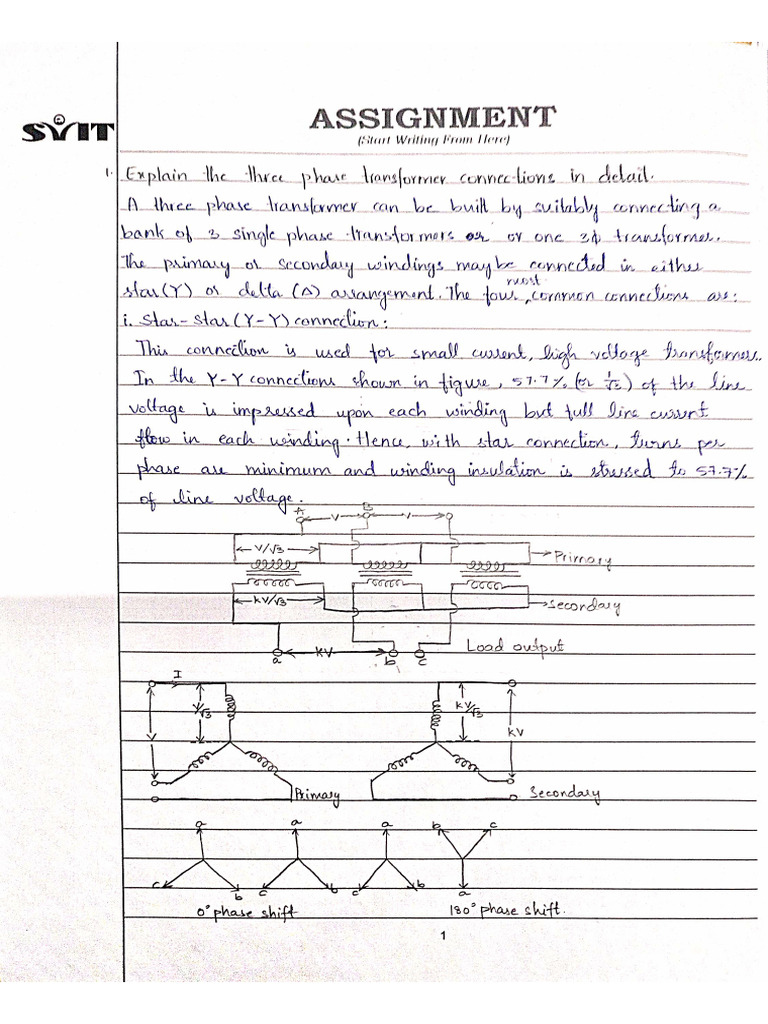 SVIT
ASSIGNMENT
(Start Writing From Here)
1. Explain the three phase transformer connections in detail.
A three phase transformer can be built by suitably connecting a
bank of 3 single phase transformers or or one 3ф transformer.
The primary or secondary windings may be connected in either
star(Y) or delta (Δ) arrangement. The four most common connections are:
i. Star-Star (Y-Y) connection:
This connection is used for small current, high voltage transformers.
In the Y-Y connections shown in figure, 57.7% (or 1/√3) of the line
voltage is impressed upon each winding but full line current
flow in each winding. Hence, with star connection, turns per
phase are minimum and winding insulation is stressed to 57.7%
of line voltage.
A B
V V
V/√3
Primary
kV/√3
Secondary
a kV b c
Load output
I
V V/√3
kV/√3 kV
Primary
Secondary
a a a b c
c b c b c b a
0° phase shift
180° phase shift.
1